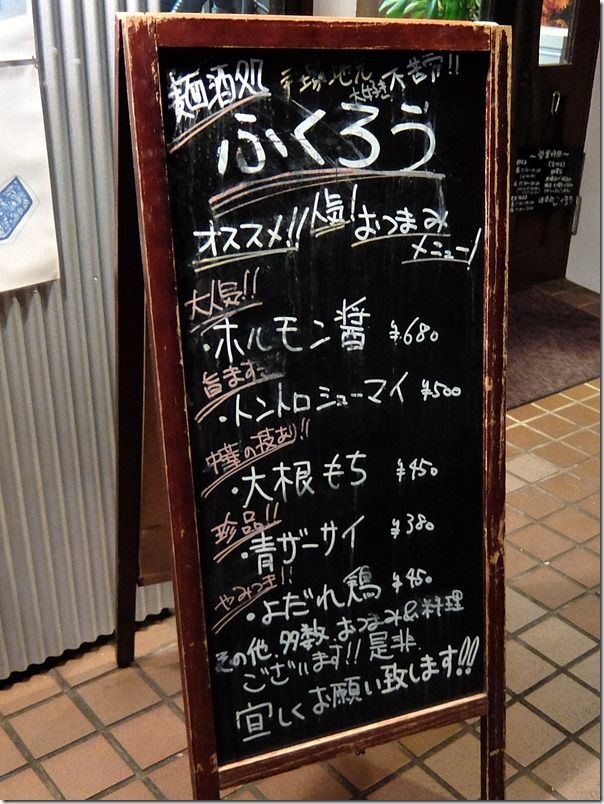 麺酒処 手塚地元大好き大吉宙!!
ふくろう
オススメ!! 人気! おつまみ
メニュー!
大人気!!
・ホルモン醤 ¥680
旨ます
・トントロシューマイ ¥500
中華の技あり!!
・大根もち ¥450
珍品!!
・青ザーサイ ¥380
やみつき!!
・よだれ鶏 ¥450
その他、多数、おつまみ&料理
ございます!! 是非、
宜しくお願い致します!!